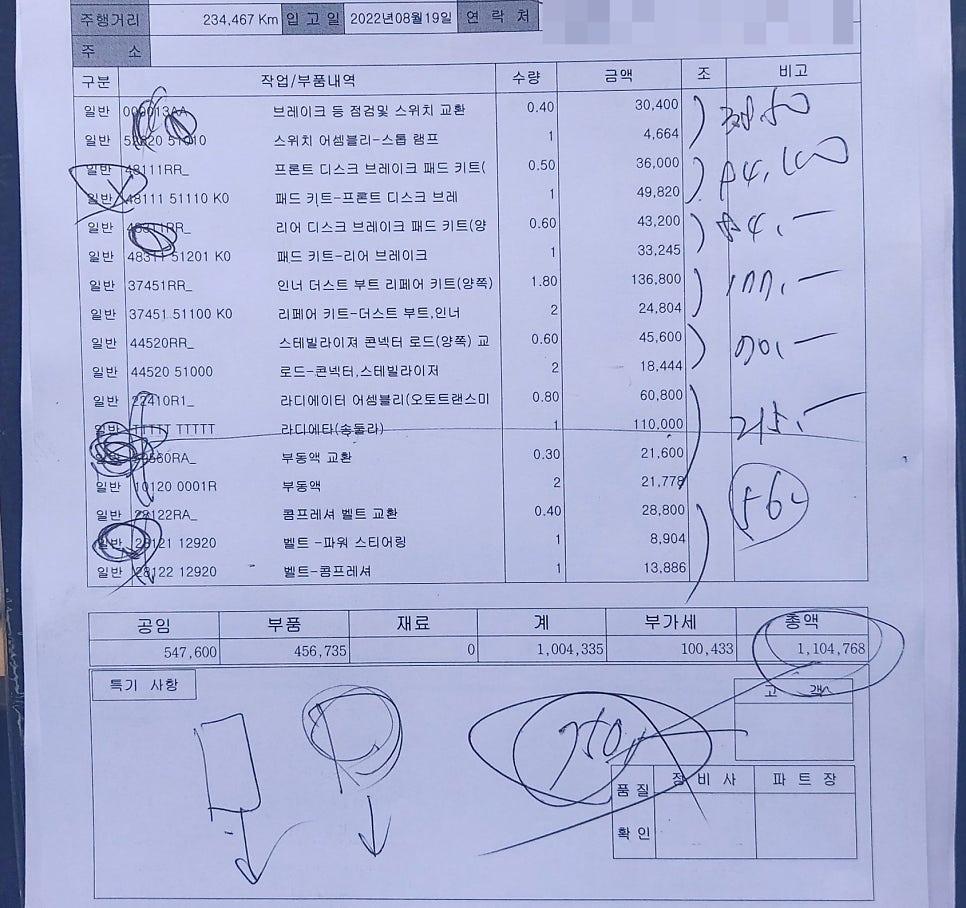 주행거리 234,467 Km 입고일 2022년08월19일 연락처
주 소
구분 작업/부품내역 수량 금액 조 비고
일반 브레이크 등 점검및 스위치 교환 0.40 30,400
일반 스위치 어셈블리-스톱 램프 1 4,664
일반 48111RR_ 프론트 디스크 브레이크 패드 키트( 0.50 36,000 84,100
일반 48111 51110 K0 패드 키트-프론트 디스크 브레 1 49,820
일반 리어 디스크 브레이크 패드 키트(양 0.60 43,200 84,-
일반 48311 51201 K0 패드 키트-리어 브레이크 1 33,245
일반 37451RR_ 인너 더스트 부트 리페어 키트(양쪽) 1.80 136,800 177,-
일반 37451 51100 K0 리페어 키트-더스트 부트,인너 2 24,804
일반 44520RR_ 스테빌라이져 콘넥터 로드(양쪽) 교 0.60 45,600
일반 44520 51000 로드-콘넥터,스테빌라이저 2 18,444
일반 라디에이터 어셈블리(오토트랜스미 0.80 60,800
일반 TTTTT TTTTT 라디에타(송둘라) 1 110,000 215,-
부동액 교환 0.30 21,600
일반 10120 0001R 부동액 2 21,778
일반 28122RA_ 콤프레셔 벨트 교환 0.40 28,800
일반 벨트 -파워 스티어링 1 8,904
일반 28122 12920 벨트-콤프레셔 1 13,886
공임 부품 재료 계 부가세 총액
547,600 456,735 0 1,004,335 100,433 1,104,768
특기 사항
고 객
750,
품질 정비사 파트장
확인